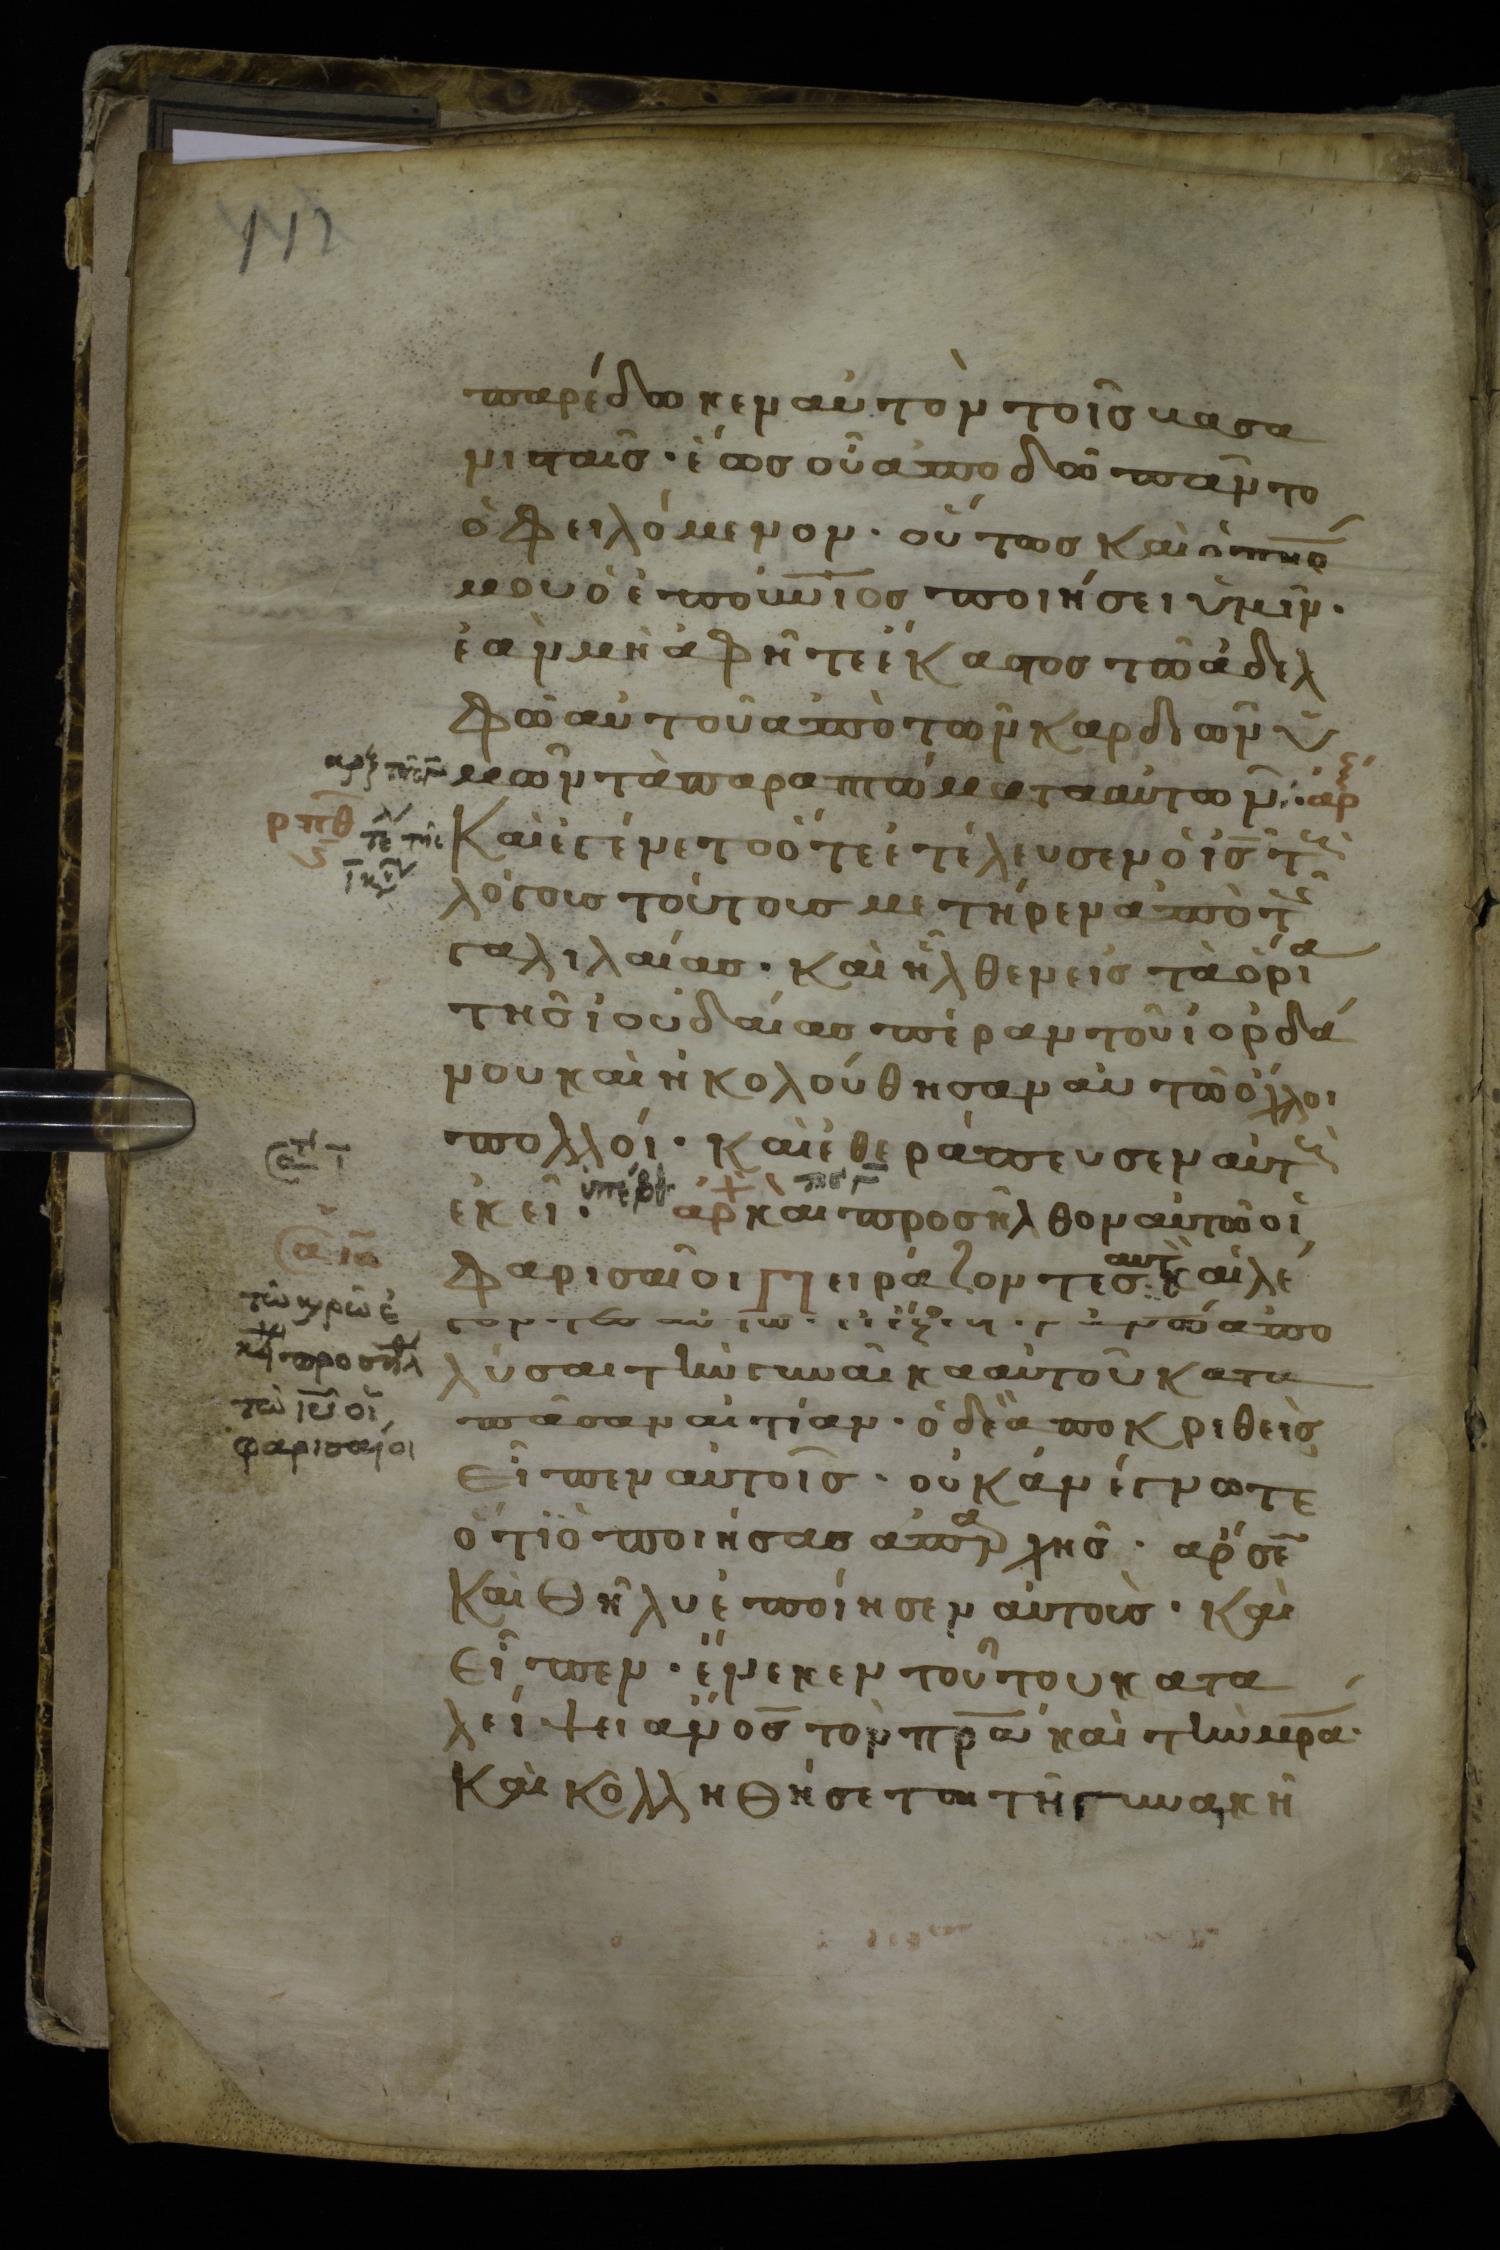 112
παρέδωκεν αὐτὸν τοῖς βασα
νισταῖς· ἕως οὗ ἀποδῶ πᾶν το
ὀφειλόμενον· οὕτως καὶ ὁ πηρ
μου ὁ ἐπουνιος ποιήσει ὑμῖν·
ἐὰν μὴ ἀφῆτε ἕκαστος τῶ ἀδελ
φῶ αὐτοῦ ἀπὸ τῶν καρδιῶν ὑ
μῶν τὰ παραπτώματα αὐτῶν· ἀρ
ρπθ
ς
Καὶ ἐγένετο ὅτε ἐτέλευσεν ὁ ις τοὺς
λόγους τούτους μετῆρεν ἀπὸ τῆς
γαλιλαίας· καὶ ἦλθεν εἰς τὰ ὅρια
τῆς ἰουδαίας πέραν τοῦ ἰορδά
νου καὶ ἠκολούθησαν αὐτῶ ὄχλοι
πολλοί· καὶ ἐθεράπευσεν αὐτοὺς
ἐκεῖ· ὑπέρβ ἀρ καὶ προσῆλθον αὐτῶ οἱ
τῶ κυρῶ ἐ
προσῆλ
τῶ ιυ οἱ
φαρισαῖοι
φαρισαῖοι πειράζοντες αυτὸν καὶ λέ
γοντες αὐτῶ· εἰ ἔξεστιν ανω ἀπο
λῦσαι τὴν γυναῖκα αὐτοῦ κατα
πᾶσαν αἰτίαν· ὁ δὲ ἀποκριθεὶς
εἶπεν αὐτοῖς· οὐκ ἀνέγνωτε
ὅτι ὁ ποιήσας ἀπαρχῆς· ἄρσεν
καὶ θῆλυ ἐποίησεν αὐτοὺς· καὶ
εἶπεν· ἕνεκεν τούτου κατα
λείψει ανος τὸν πρα καὶ τὴν μρα·
καὶ κολληθήσεται τῆ γυναικὶ